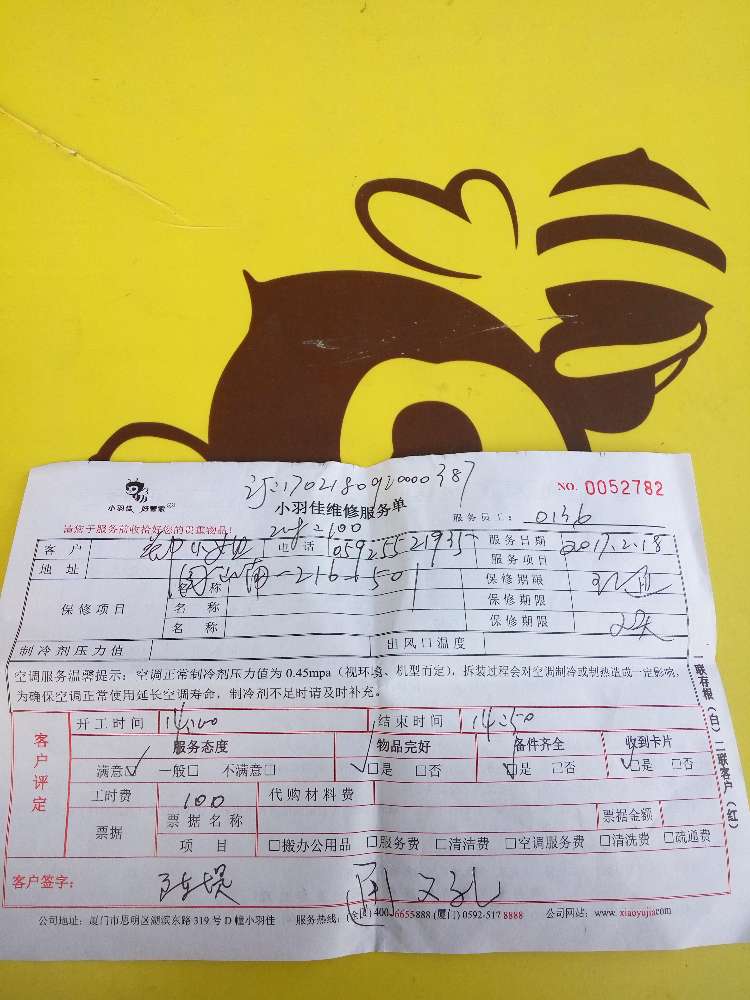 小羽佳 好管家
小羽佳维修服务单
NO. 0052782
请您于服务前收拾好您的贵重物品!
服务员工: 0136
客户 小姐 电话 服务日期 2017.2.18
地址 服务项目
保修项目 名称 保修期限
名称 保修期限
名称 保修期限
制冷剂压力值 出风口温度
空调服务温馨提示:空调正常制冷剂压力值为 0.45mpa(视环境、机型而定),拆装过程会对空调制冷或制热造成一定影响,
为确保空调正常使用延长空调寿命,制冷剂不足时请及时补充。
联存根(白)二联客户(红)
客户评定
开工时间 14:00 结束时间 14:50
服务态度 物品完好 备件齐全 收到卡片
满意☑ 一般□ 不满意□ ☑是 □否 ☑是 □否 ☑是 □否
工时费 100 代购材料费
票据 票据名称 票据金额
项目 □搬办公用品 □服务费 □清洁费 □空调服务费 □清洗费 □疏通费
客户签字:
公司地址:厦门市思明区湖滨东路 319 号 D 幢小羽佳 服务热线:(全国) 400-6655888 (厦门) 0592-517 8888 公司网站:www.xiaoyujia.com